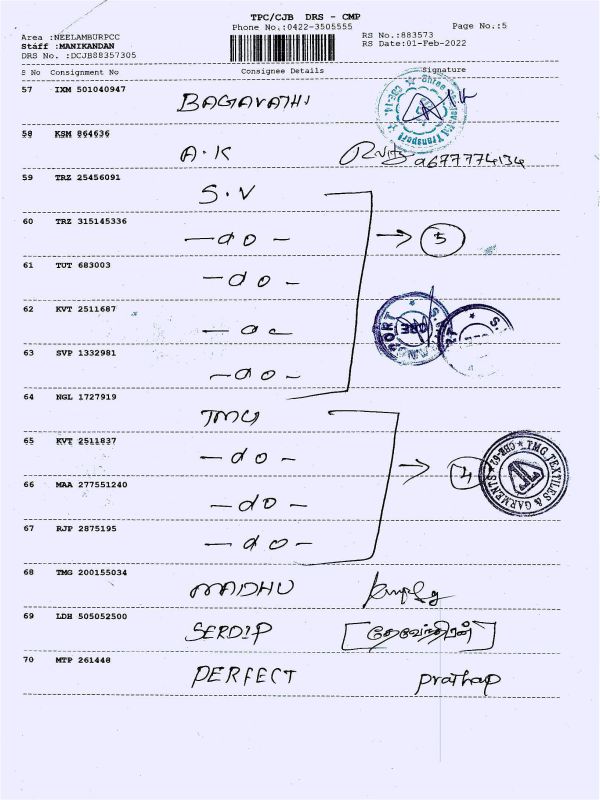 TPC/CJB DRS - CMP
Phone No.:0422-3505555
Page No.:5
Area :NEELAMBURPCC
RS No.:883573
Staff :MANIKANDAN
RS Date:01-Feb-2022
DRS No. :DCJB88357305
S No Consignment No Consignee Details Signature
57 IXM 501040947 BAGAVATHI
58 KSM 864636 A.K 9677774134
59 TRZ 25456091 S.V
60 TRZ 315145336 -do- → 5
61 TUT 683003 -do-
62 KVT 2511687 -do-
63 SVP 1332981 -do-
64 NGL 1727919 TMG
65 KVT 2511837 -do- → 4
TMG TEXTILES & GARMENTS ★ CBE-62 ★
66 MAA 277551240 -do-
67 RJP 2875195 -do-
68 TMG 200155034 MADHU
69 LDH 505052500 SERDIP தேவேந்திரன்
70 MTP 261448 PERFECT prathap